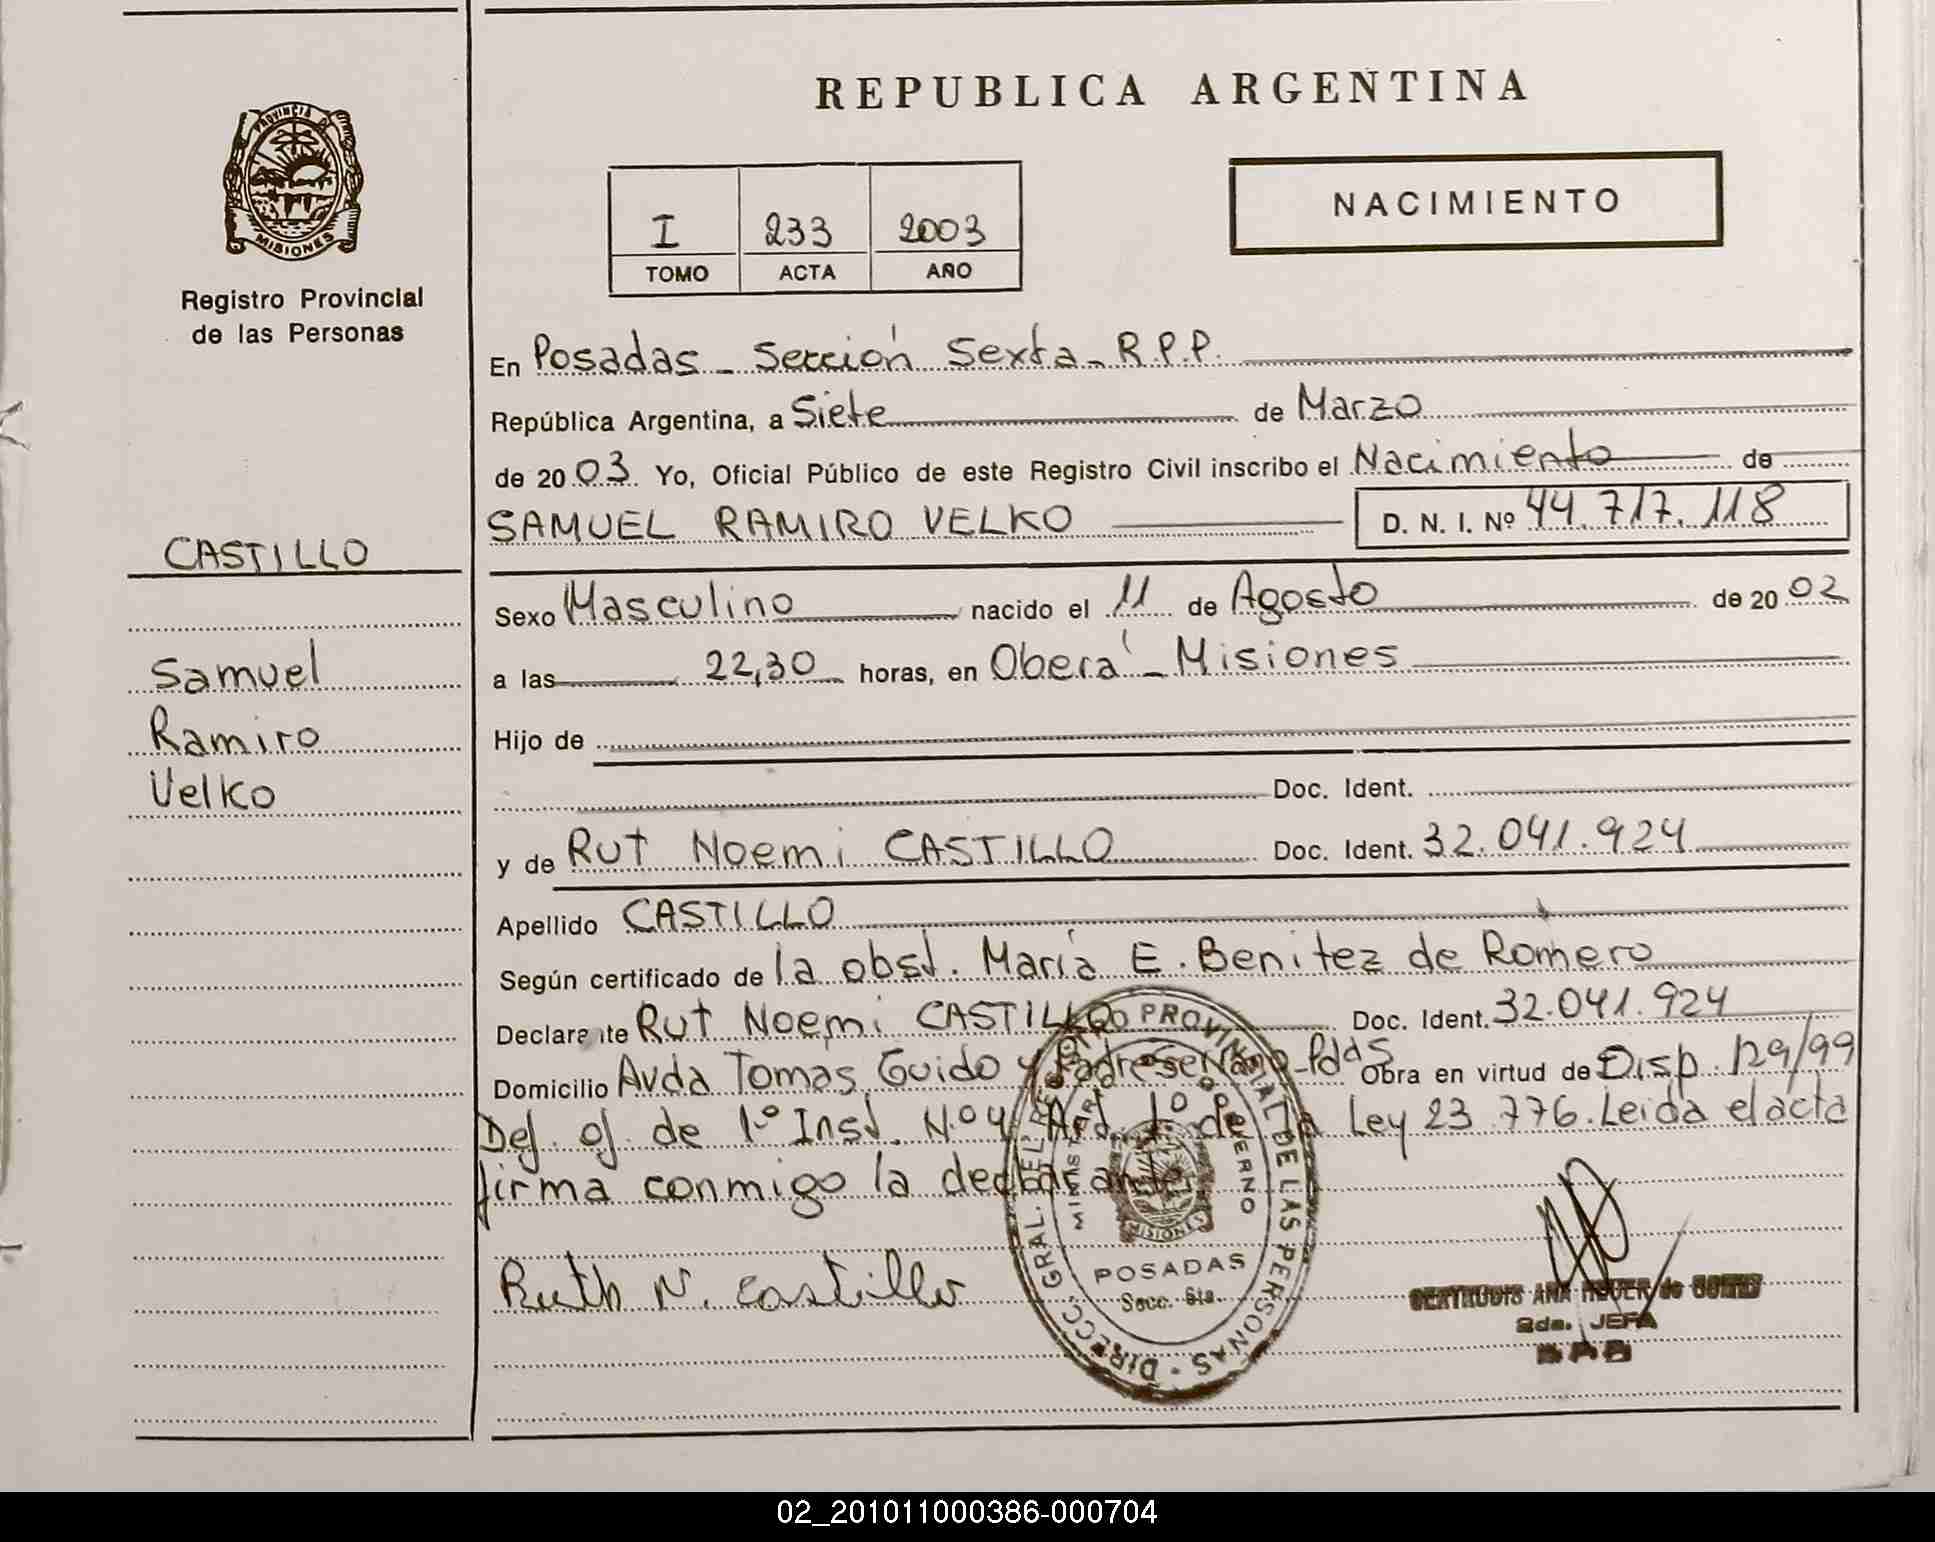 REPUBLICA ARGENTINA
PROVINCIA DE
MISIONES
Registro Provincial
de las Personas
NACIMIENTO
I 233 2003
TOMO ACTA AÑO
En Posadas - Sección Sexta - R.P.P.
República Argentina, a Siete de Marzo
de 2003 Yo, Oficial Público de este Registro Civil inscribo el Nacimiento de
SAMUEL RAMIRO VELKO D. N. I. Nº 44.717.118
CASTILLO
Samuel
Ramiro
Velko
Sexo Masculino nacido el 11 de Agosto de 2002
a las 22,30 horas, en Oberá - Misiones
Hijo de
Doc. Ident.
y de Rut Noemi CASTILLO Doc. Ident. 32.041.924
Apellido CASTILLO
Según certificado de la obst. María E. Benitez de Romero
Declarante Rut Noemi CASTILLO Doc. Ident. 32.041.924
Domicilio Avda Tomas Guido y Padre Serrano - Pdas Obra en virtud de Disp. 129/99
Def. of. de 1º Inst. Nº 4 Art. 1º de la Ley 23.776. Leida el acta
firma conmigo la declarante
Ruth N. Castillo
DIRECC. GRAL. DEL REGISTRO PROVINCIAL DE LAS PERSONAS
MINISTERIO DE GOBIERNO
MISIONES
POSADAS
Secc. 6ta.
GERTRUDIS ANA
2da. JEFA
02_201011000386-000704